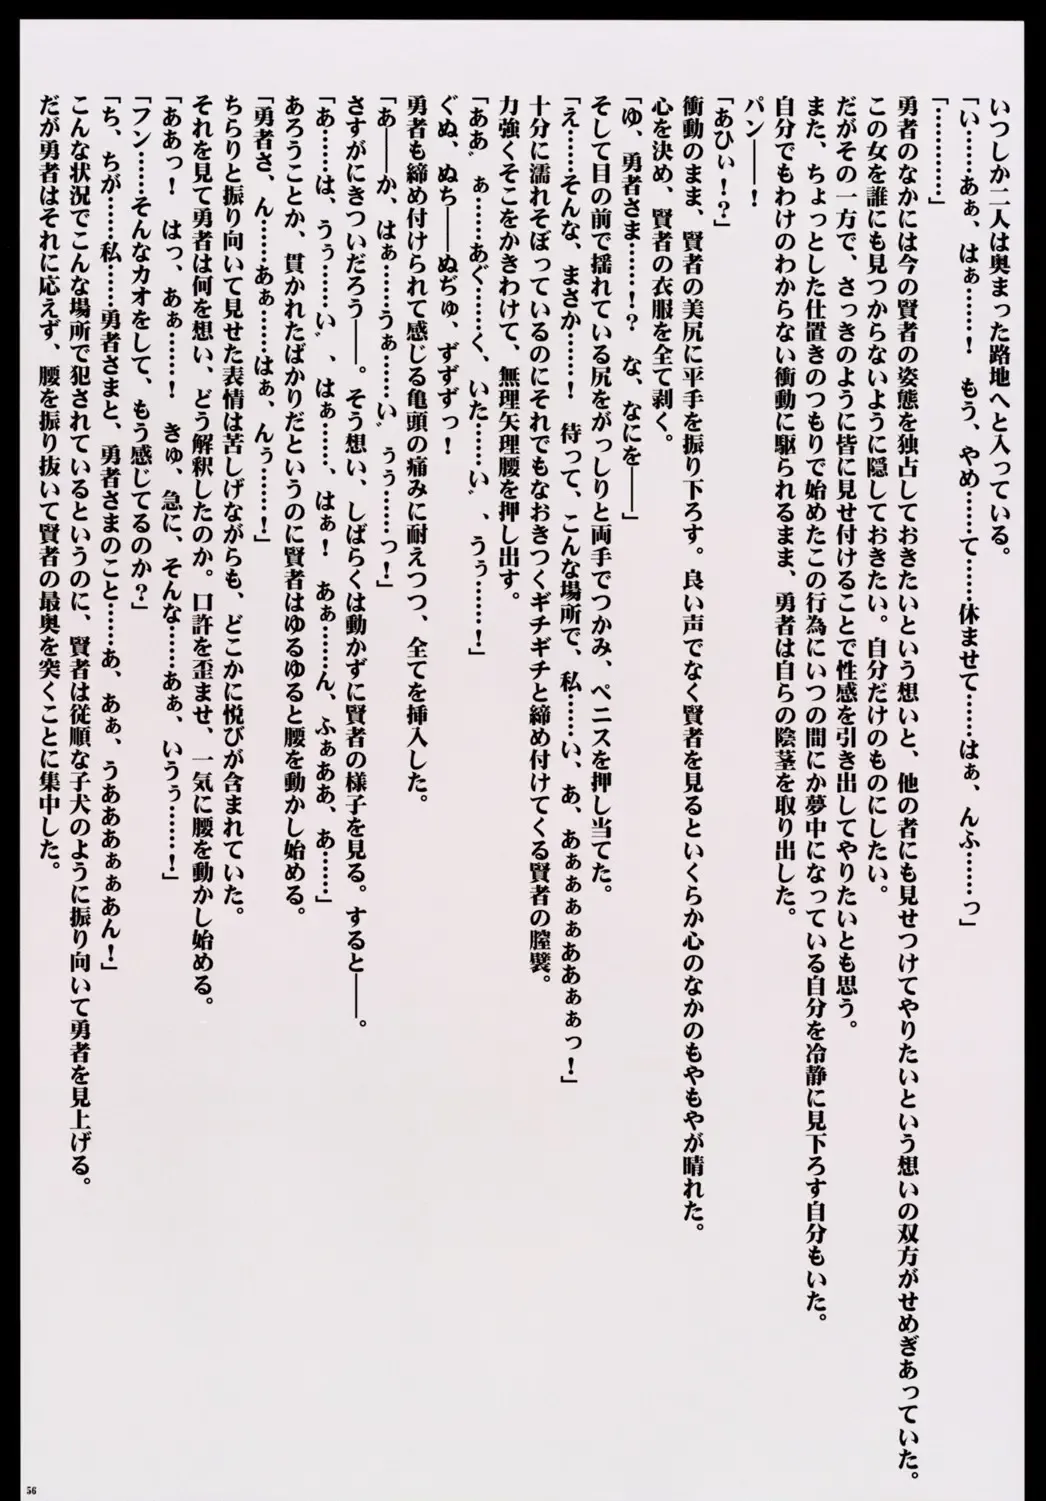 いつしか二人は奥まった路地へと入っている。
「い……あぁ、はぁ……！　もう、やめ……て……休ませて……はぁ、んふ……っ」
「…………」
勇者のなかには今の賢者の姿態を独占しておきたいという想いと、他の者にも見せつけてやりたいという想いの双方がせめぎあっていた。
この女を誰にも見つからないように隠しておきたい。自分だけのものにしたい。
だがその一方で、さっきのように皆に見せ付けることで性感を引き出してやりたいとも思う。
また、ちょっとした仕置きのつもりで始めたこの行為にいつの間にか夢中になっている自分を冷静に見下ろす自分もいた。
自分でもわけのわからない衝動に駆られるまま、勇者は自らの陰茎を取り出した。
パン――！
「あひぃ！？」
衝動のまま、賢者の美尻に平手を振り下ろす。良い声でなく賢者を見るといくらか心のなかのもやもやが晴れた。
心を決め、賢者の衣服を全て剥く。
「ゆ、勇者さま……！？　な、なにを――」
そして目の前で揺れている尻をがっしりと両手でつかみ、ペニスを押し当てた。
「え……そんな、まさか……！　待って、こんな場所で、私……い、あ、あぁぁぁぁああぁぁっ！」
十分に濡れそぼっているのにそれでもなおきつくギチギチと締め付けてくる賢者の膣襞。
力強くそこをかきわけて、無理矢理腰を押し出す。
「ああ゛ぁ……あぐ……く、いた……い゛、うぅ……！」
ぐぬ、ぬち――ぬぢゅ、ずずずっ！
勇者も締め付けられて感じる亀頭の痛みに耐えつつ、全てを挿入した。
「あ――か、はぁ……うぁ……い゛ぅぅ……っ！」
さすがにきついだろう――。そう想い、しばらくは動かずに賢者の様子を見る。すると――。
「あ……は、うぅ……い゛、はぁ……、はぁ！　あぁ……ん、ふぁああ、あ……」
あろうことか、貫かれたばかりだというのに賢者はゆるゆると腰を動かし始める。
「勇者さ、ん……あぁ……はぁ、んぅ……！」
ちらりと振り向いて見せた表情は苦しげながらも、どこかに悦びが含まれていた。
それを見て勇者は何を想い、どう解釈したのか。口許を歪ませ、一気に腰を動かし始める。
「ああっ！　はっ、あぁ……！　きゅ、急に、そんな……あぁ、いうぅ……！」
「フン……そんなカオをして、もう感じてるのか？」
「ち、ちが……私……勇者さまと、勇者さまのこと……あ、あぁ、うあああぁぁあん！」
こんな状況でこんな場所で犯されているというのに、賢者は従順な子犬のように振り向いて勇者を見上げる。
だが勇者はそれに応えず、腰を振り抜いて賢者の最奥を突くことに集中した。
56